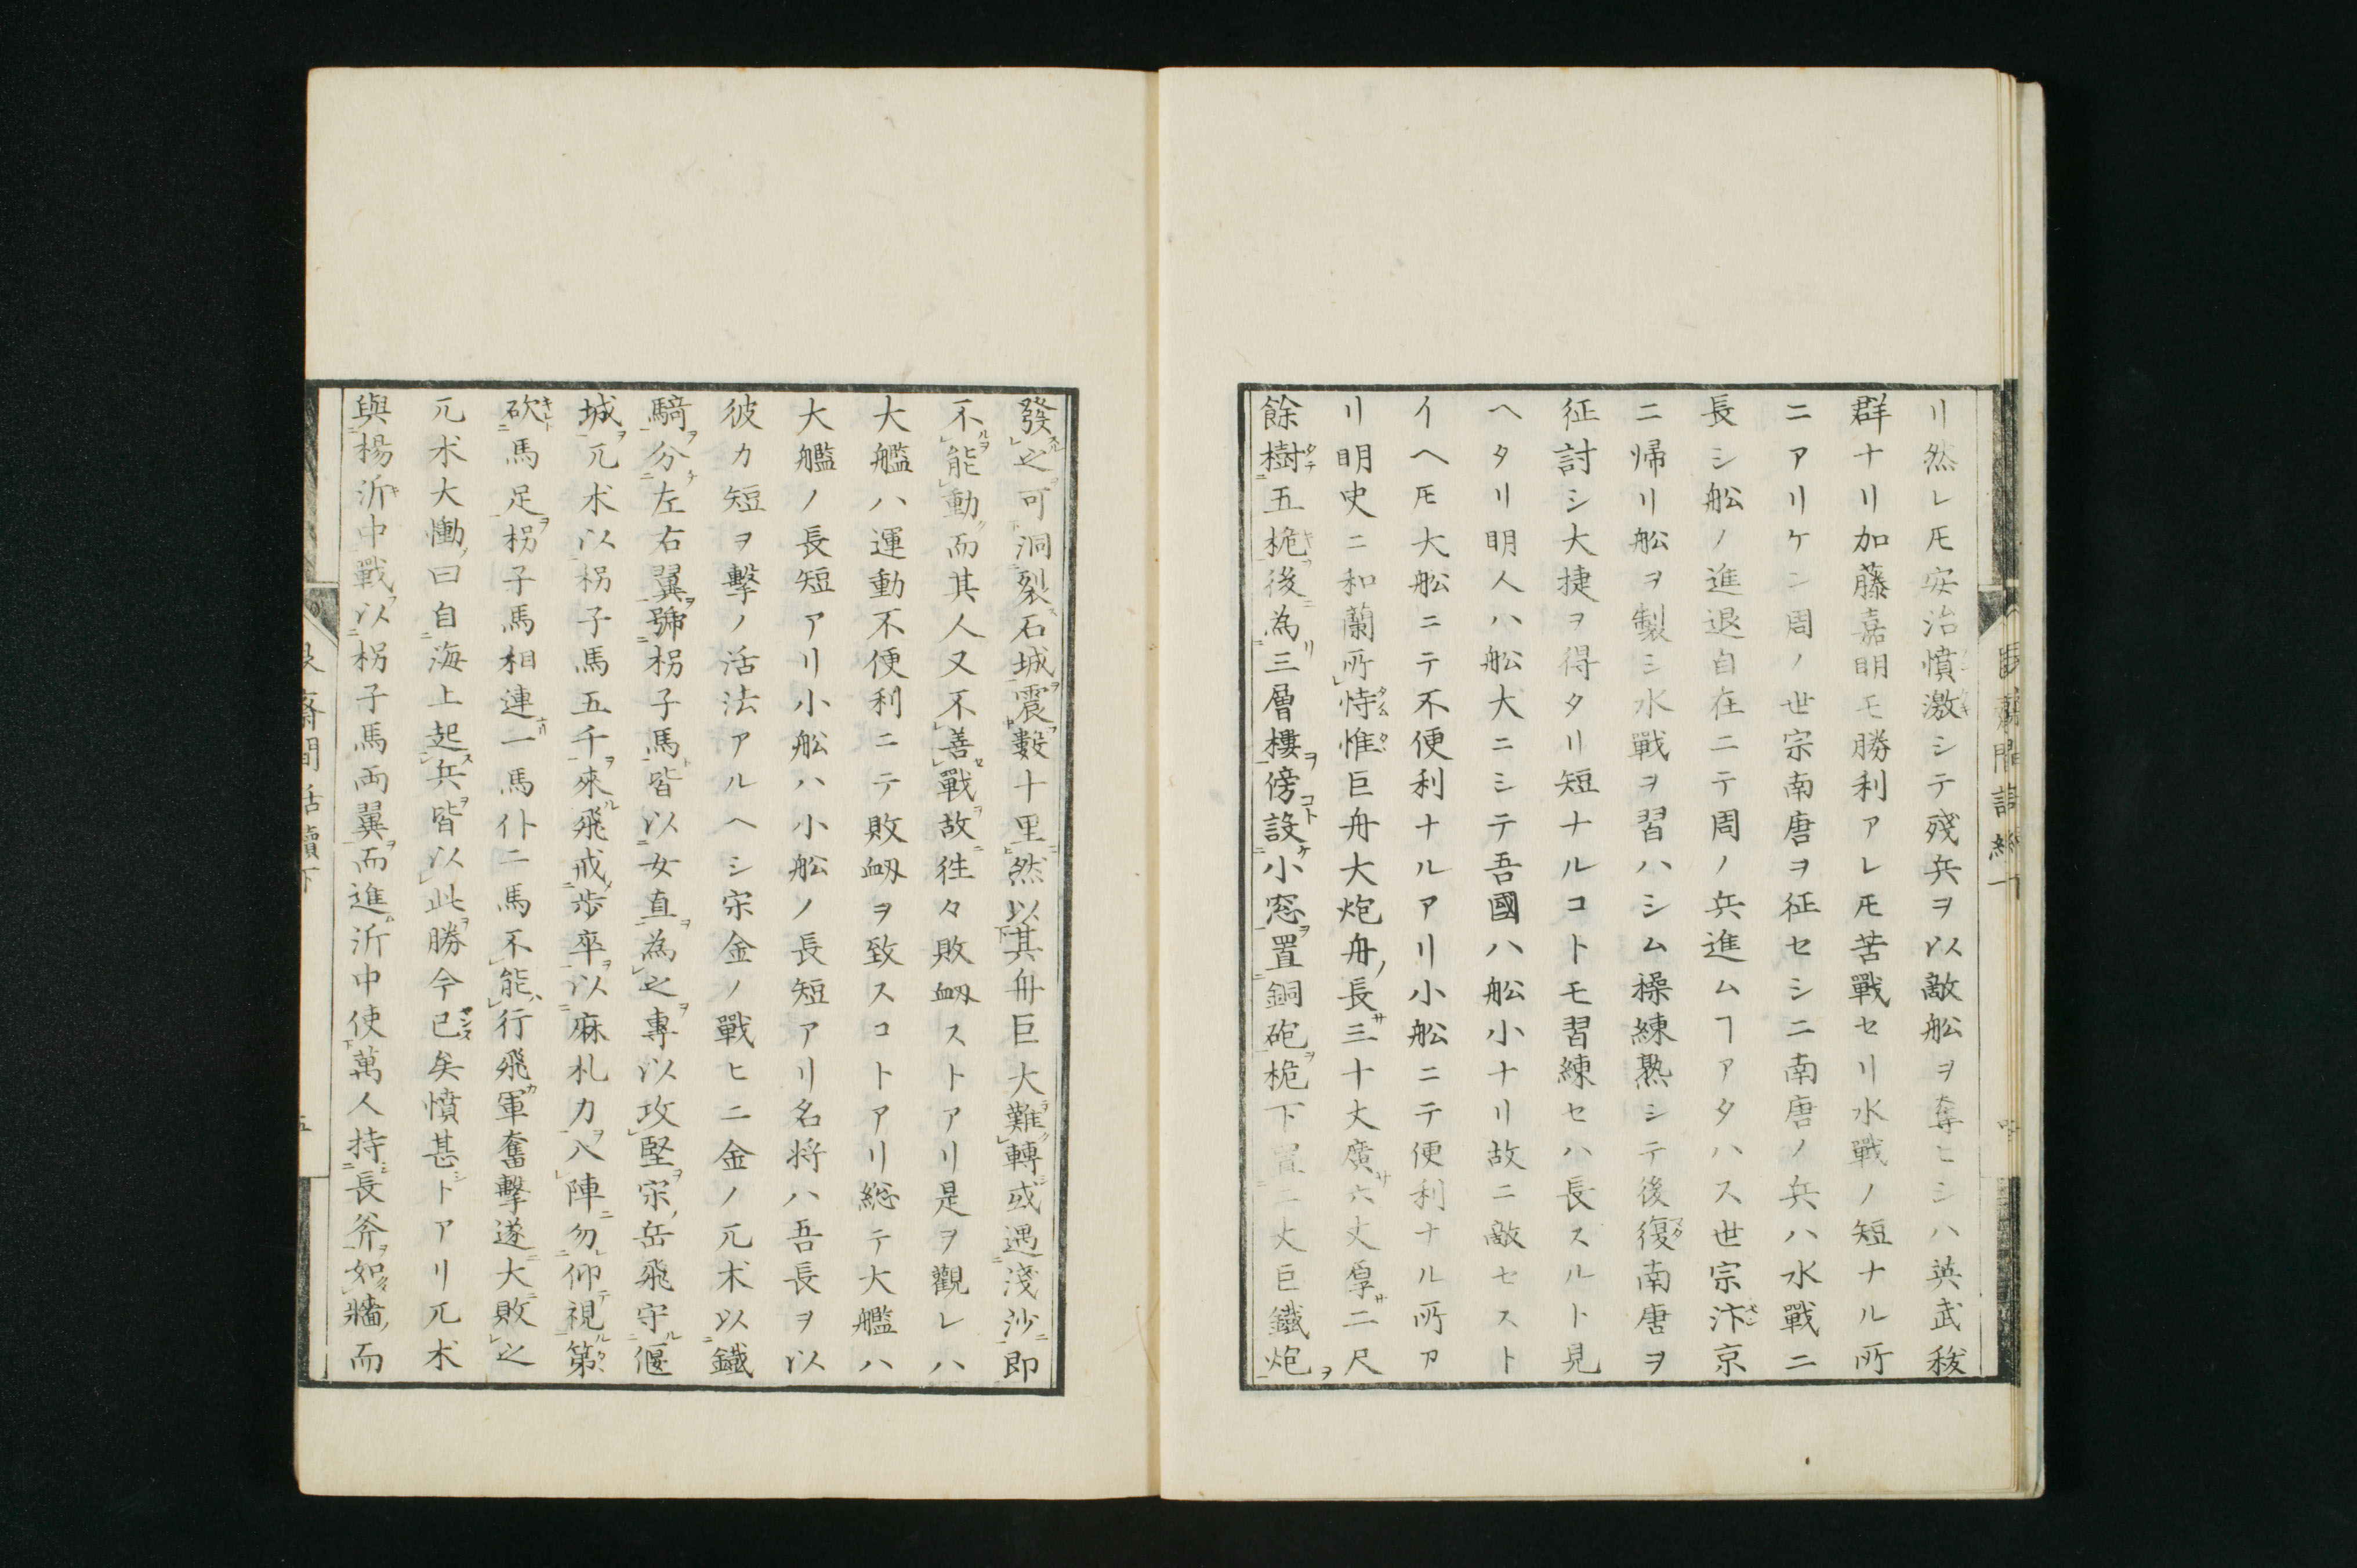 リ然レ𪜈安治憤激シテ殘兵ヲ以敵舩ヲ奪ヒシハ英武秡
群ナリ加藤嘉明モ勝利アレ𪜈苦戰セリ水戰ノ短ナル所
ニアリケン周ノ世宗南唐ヲ征セシニ南唐ノ兵ハ水戰ニ
長シ舩ノ進退自在ニテ周ノ兵進ムヿアタハス世宗汴京
ニ帰リ舩ヲ製シ水戰ヲ習ハシム操練熟シテ後復南唐ヲ
征討シ大捷ヲ得タリ短ナルコトモ習練セハ長スルト見
ヘタリ明人ハ舩大ニシテ吾國ハ舩小ナリ故ニ敵セスト
イヘ𪜈大舩ニテ不便利ナルアリ小舩ニテ便利ナル所ア
リ明史ニ和蘭所恃惟巨舟大炮舟長三十丈廣六丈厚二尺
餘樹五桅後為三層樓傍設小窓置銅砲桅下置二丈巨鐵炮
發之可洞裂石城震數十里然以其舟巨大難轉或遇淺沙即
不能動而其人又不善戰故徃々敗衂ストアリ是ヲ觀レハ
大艦ハ運動不便利ニテ敗衂ヲ致スコトアリ総テ大艦ハ
大艦ノ長短アリ小舩ハ小舩ノ長短アリ名将ハ吾長ヲ以
彼カ短ヲ擊ノ活法アルヘシ宋金ノ戰ヒニ金ノ兀朮以鐵
騎分左右翼號柺子馬皆以女直為之專以攻堅宋岳飛守偃
城兀朮以柺子馬五千來飛戒步卒以麻札刀入陣勿仰視第
砍馬足柺子馬相連一馬仆二馬不能行飛軍奮擊遂大敗之
兀朮大慟曰自海上起兵皆以此勝今已矣憤甚トアリ兀朮
與楊沂中戰以柺子馬両翼而進沂中使萬人持長斧如牆而